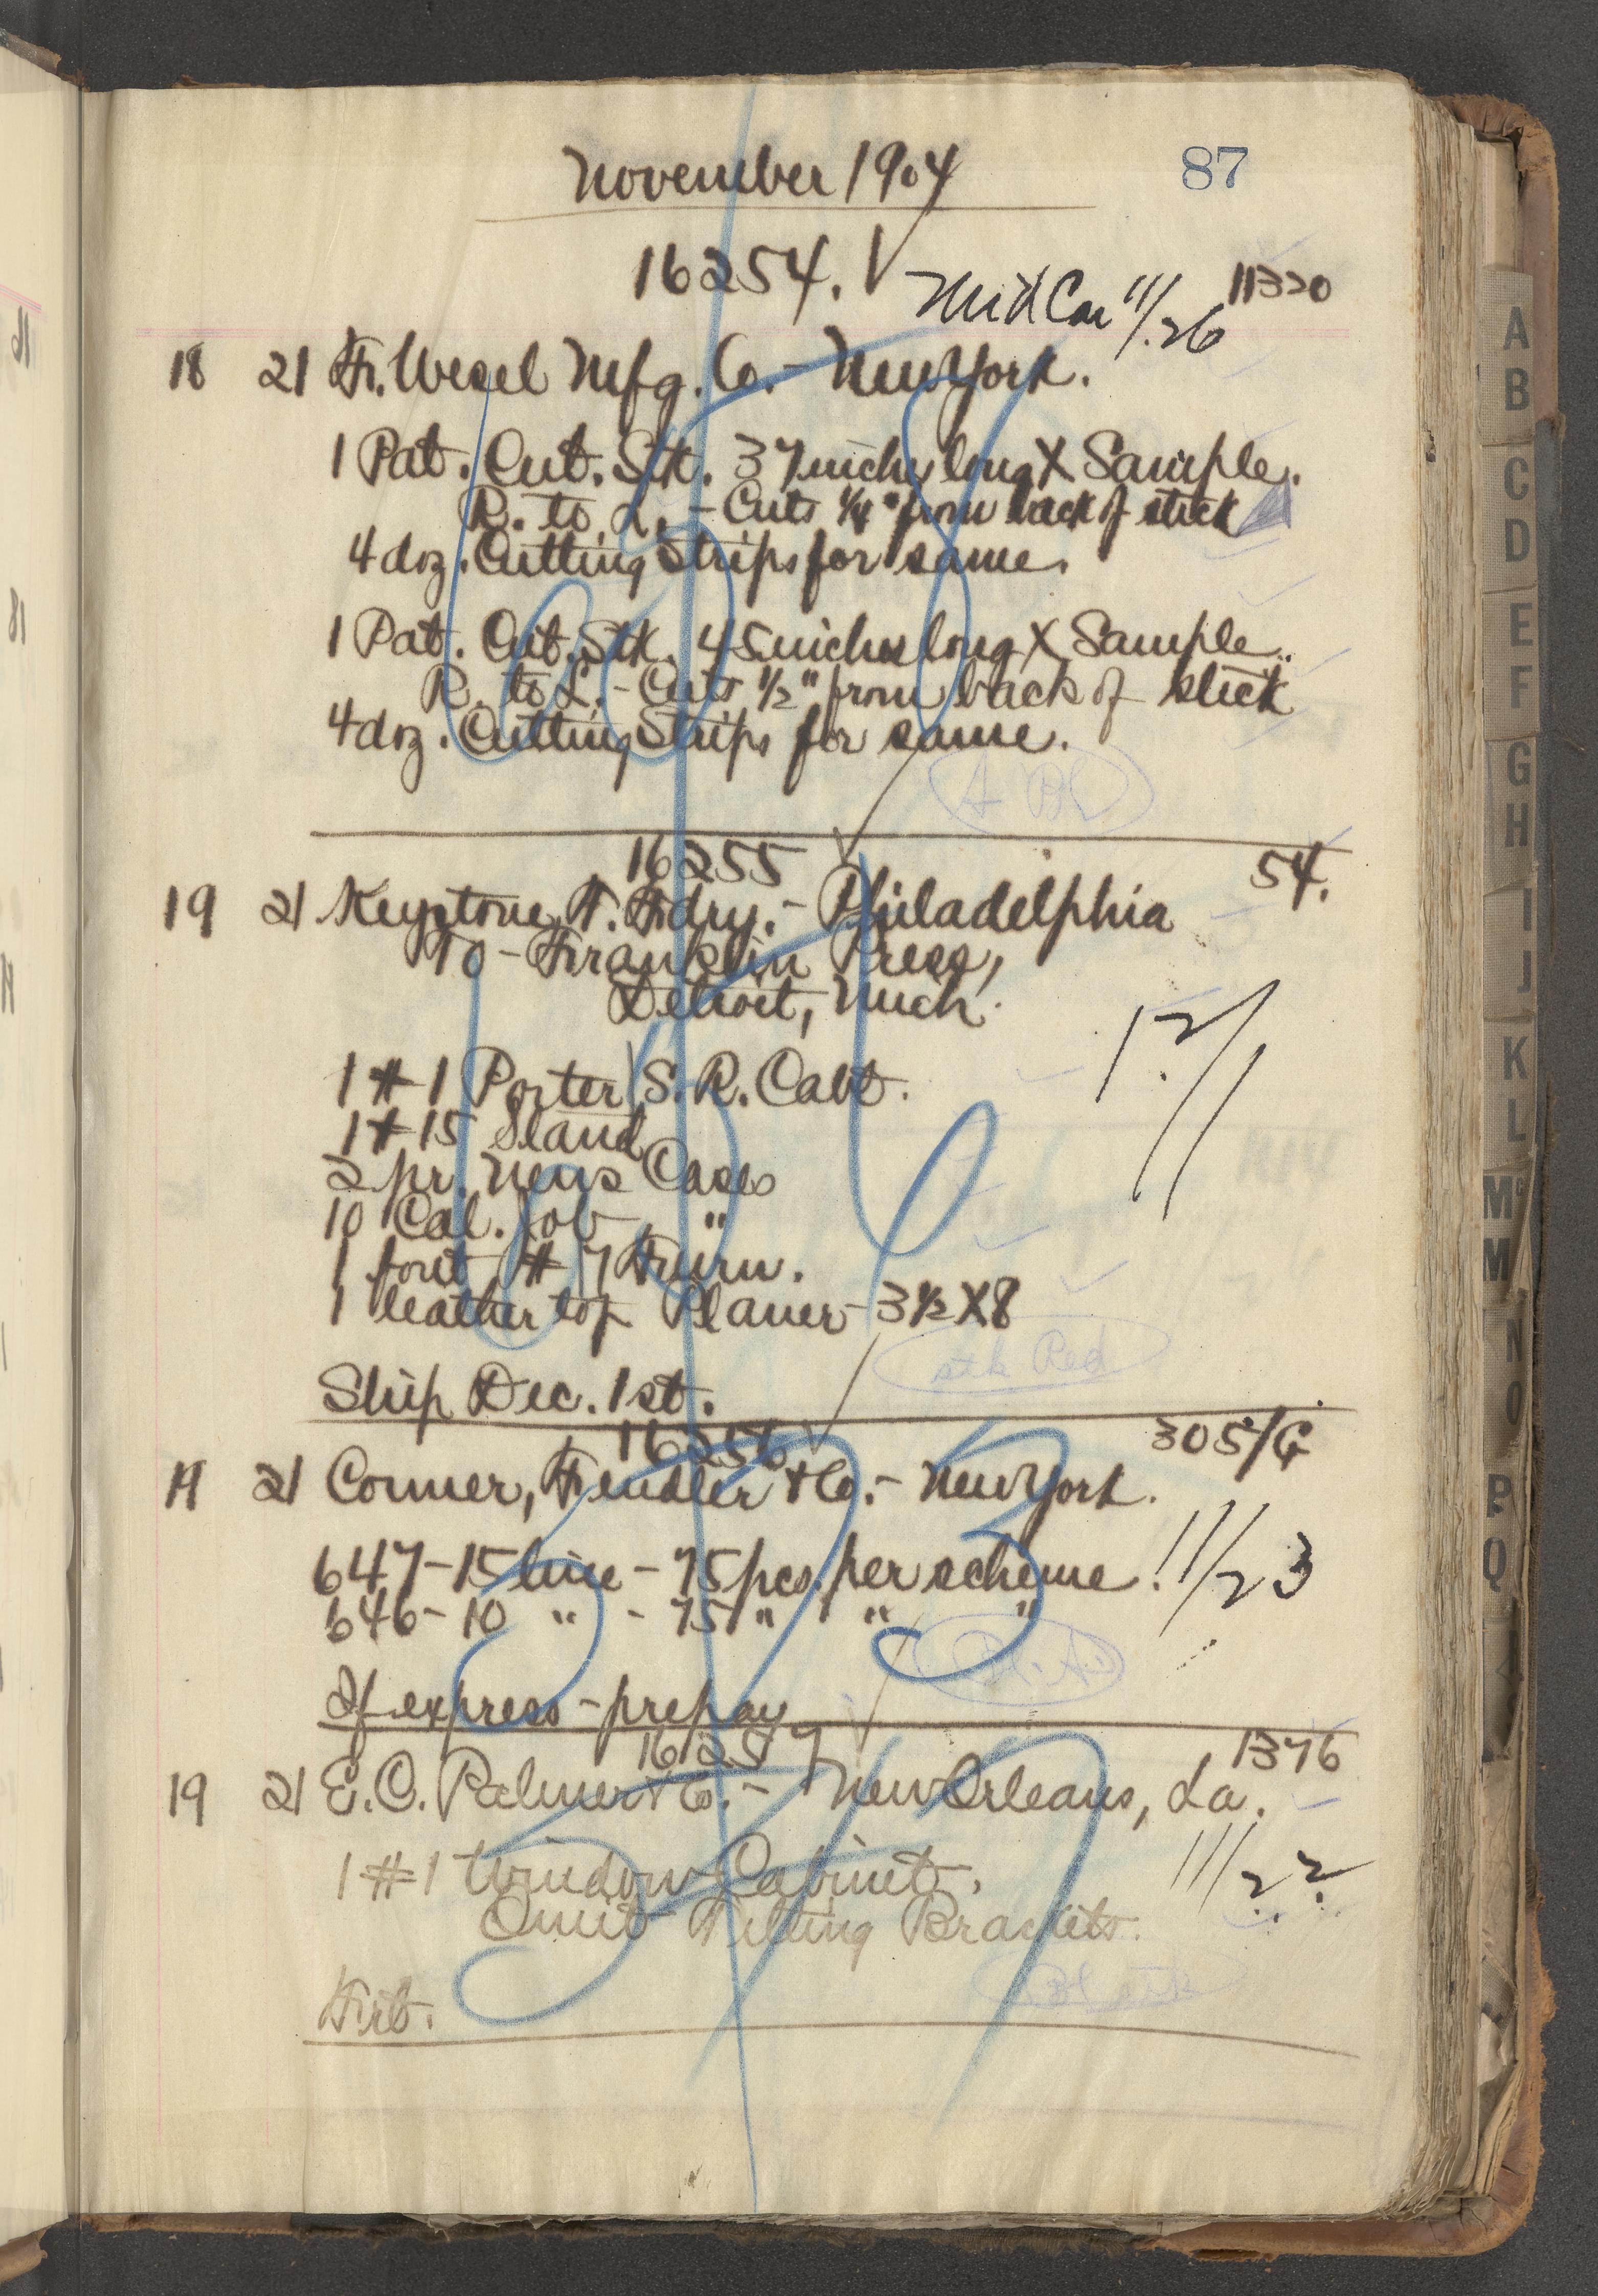 November 1904
87
16254.
Mid Car 11/26
11320
18 21 F. Wesel Mfg. Co. - New York.
1 Pat. Cut. Stk. 37 inches long X Sample.
R. to L. - Cuts 1/4" from back of stick
4 doz. Cutting Strips for same.
1 Pat. Cut. Stk. 45 inches long X Sample.
R. to L. - Cuts 1/2" from back of stick
4 doz. Cutting Strips for same.
16255
54.
19 21 Keystone T. Fdry. - Philadelphia
To - Franklin Press,
Detroit, Mich.
12/
1 #1 Porter S. R. Cabt.
1 #15 Stand
2 pr. News Cases
10 Cal. Job "
1 font #7 Furn.
1 leather top Planer - 3 1/2 X 8
stk Red
Ship Dec. 1st.
16256
305/G
19 21 Conner, Fendler & Co. - New York.
647 - 15 line - 75 pcs. per scheme.
11/23
646 - 10 " - 75 " " "
If express - prepay
16257
1376
19 21 E. C. Palmer & Co. - New Orleans, La.
1 #1 Window Cabinet.
11/22
Omit Tilting Brackets.
Frt.
A
B
C
D
E
F
G
H
I
J
K
L
Mc
M
N
O
P
Q